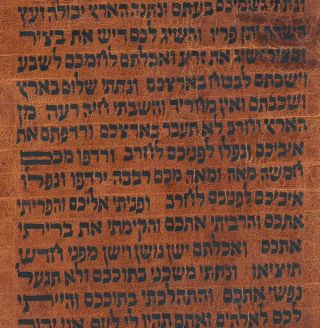 ונתתי גשמיכם בעתם ונתנה הארץ יבולה ועץ
השדה יתן פריו והשיג לכם דיש את בציר
ובציר ישיג את זרע ואכלתם לחמכם לשבע
וישבתם לבטח בארצכם ונתתי שלום בארץ
ושכבתם ואין מחריד והשבתי חיה רעה מן
הארץ וחרב לא תעבר בארצכם ורדפתם את
איביכם ונפלו לפניכם לחרב ורדפו מכם
חמשה מאה ומאה מכם רבבה ירדפו ונפלו
איביכם לפניכם לחרב ופניתי אליכם והפריתי
אתכם והרביתי אתכם והקימתי את בריתי
אתכם ואכלתם ישן נושן וישן מפני חדש
תוציאו ונתתי משכני בתוככם ולא תגעל
נפשי אתכם והתהלכתי בתוככם והייתי
לכם לאלהים ואתם תהיו לי לעם אני יהוה